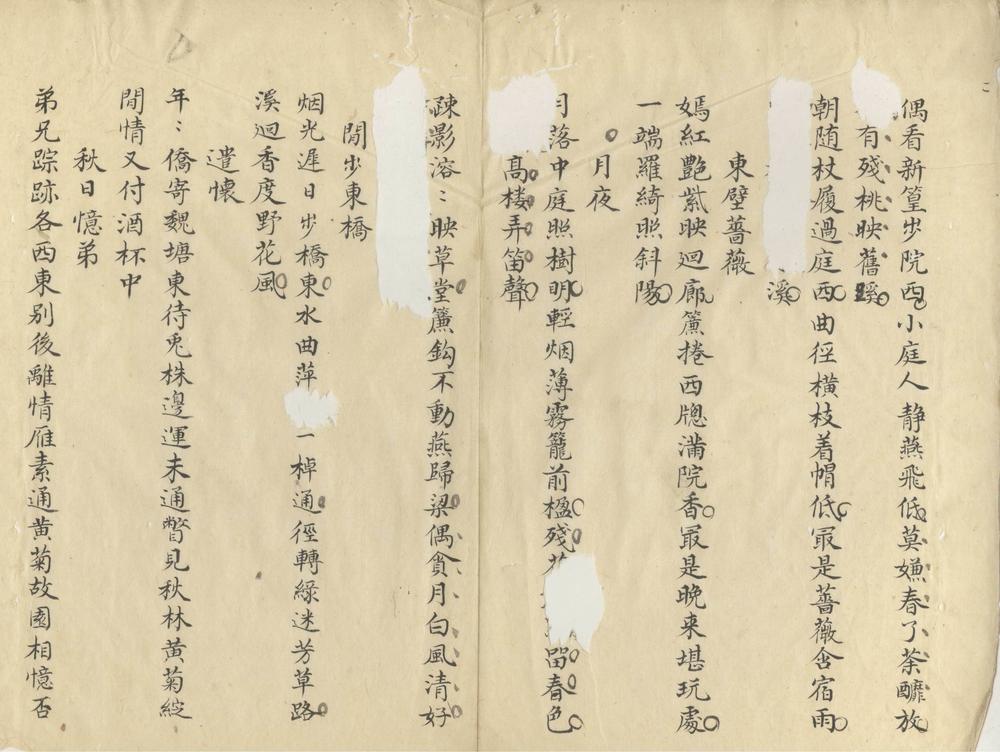 偶看新篁步院西小庭人静燕飛低莫嫌春了荼蘼放
有殘桃映舊蹊
朝随杖履過庭西曲徑横枝着帽低㝡是薔薇含宿雨
溪
東壁薔薇
嫣紅艷紫映迴廊簾捲西牕滿院香㝡是晚来堪玩處
一端羅綺照斜陽
月夜
月落中庭照樹明輕烟薄霧籠前楹殘留春色
高楼弄笛聲
疎影溶〻映草堂簾鈎不動燕歸梁偶貪月白風清好
閒步東橋
烟光遲日步橋東水曲萍一棹通徑轉緑迷芳草路
溪迴香度野花風
遣懷
年〻僑寄魏塘東待兎株邊運未通瞥見秋林黄菊綻
閒情又付酒杯中
秋日憶弟
弟兄踪跡各西東别後離情雁素通黄菊故園相憶否